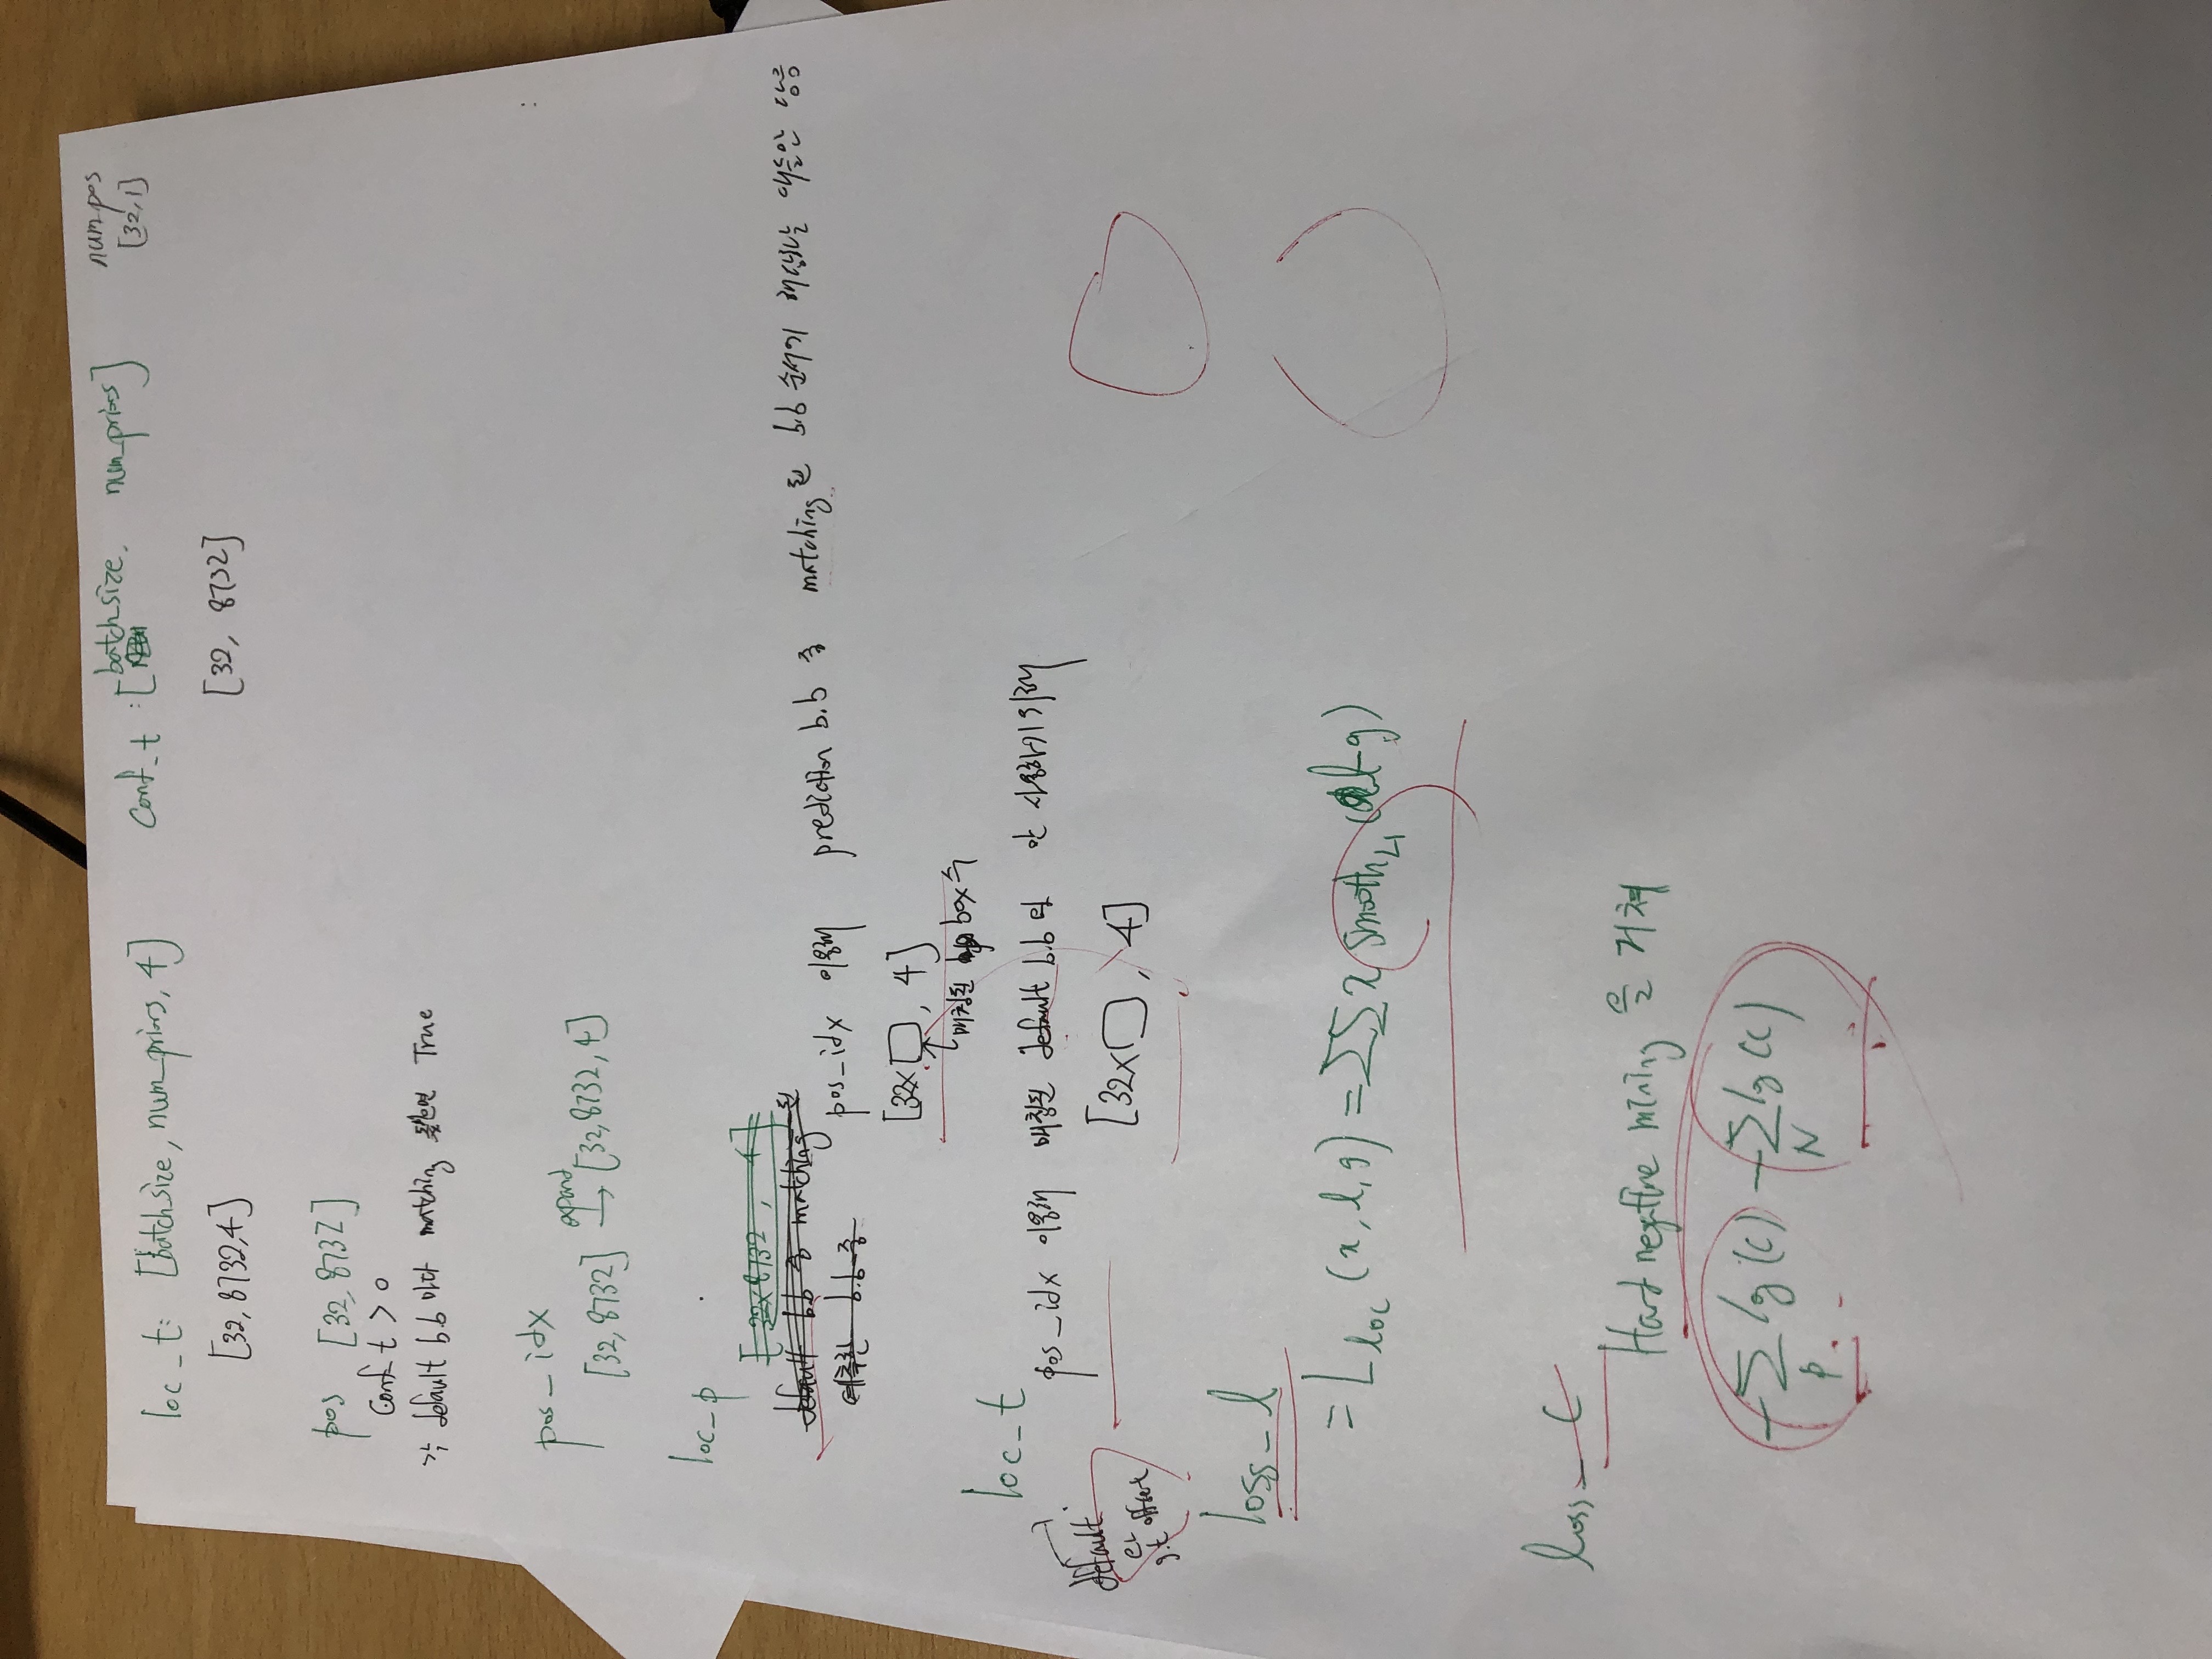 loc_t: [batch_size, num_priors, 4]
conf_t : [batch_size, num_priors]
num_pos
[32,1]
[32, 8732, 4]
[32, 8732]
pos [32, 8732]
conf_t > 0
각 default b.b 마다 matching 됐으면 True
pos_idx
[32, 8732] expand → [32, 8732, 4]
loc_p
[32×8732, 4]
default b.b 중 matching 된
예측한 b.b 중
pos_idx 이용해 prediction b.b 중 matching 된 b.b 순서가 해당되는 애들만 담음
[32×□, 4]
매칭된 box 수
loc_t
pos_idx 이용해 매칭된 default b.b 만 사용하기 위해
default
g.t offset
[32×□, 4]
loss_l
= L loc (x, l, g) = ΣΣ x smooth L1 (l-g)
loss_c
Hard negative mining 을 거쳐
-Σ log(c) -Σ log(c)
P N